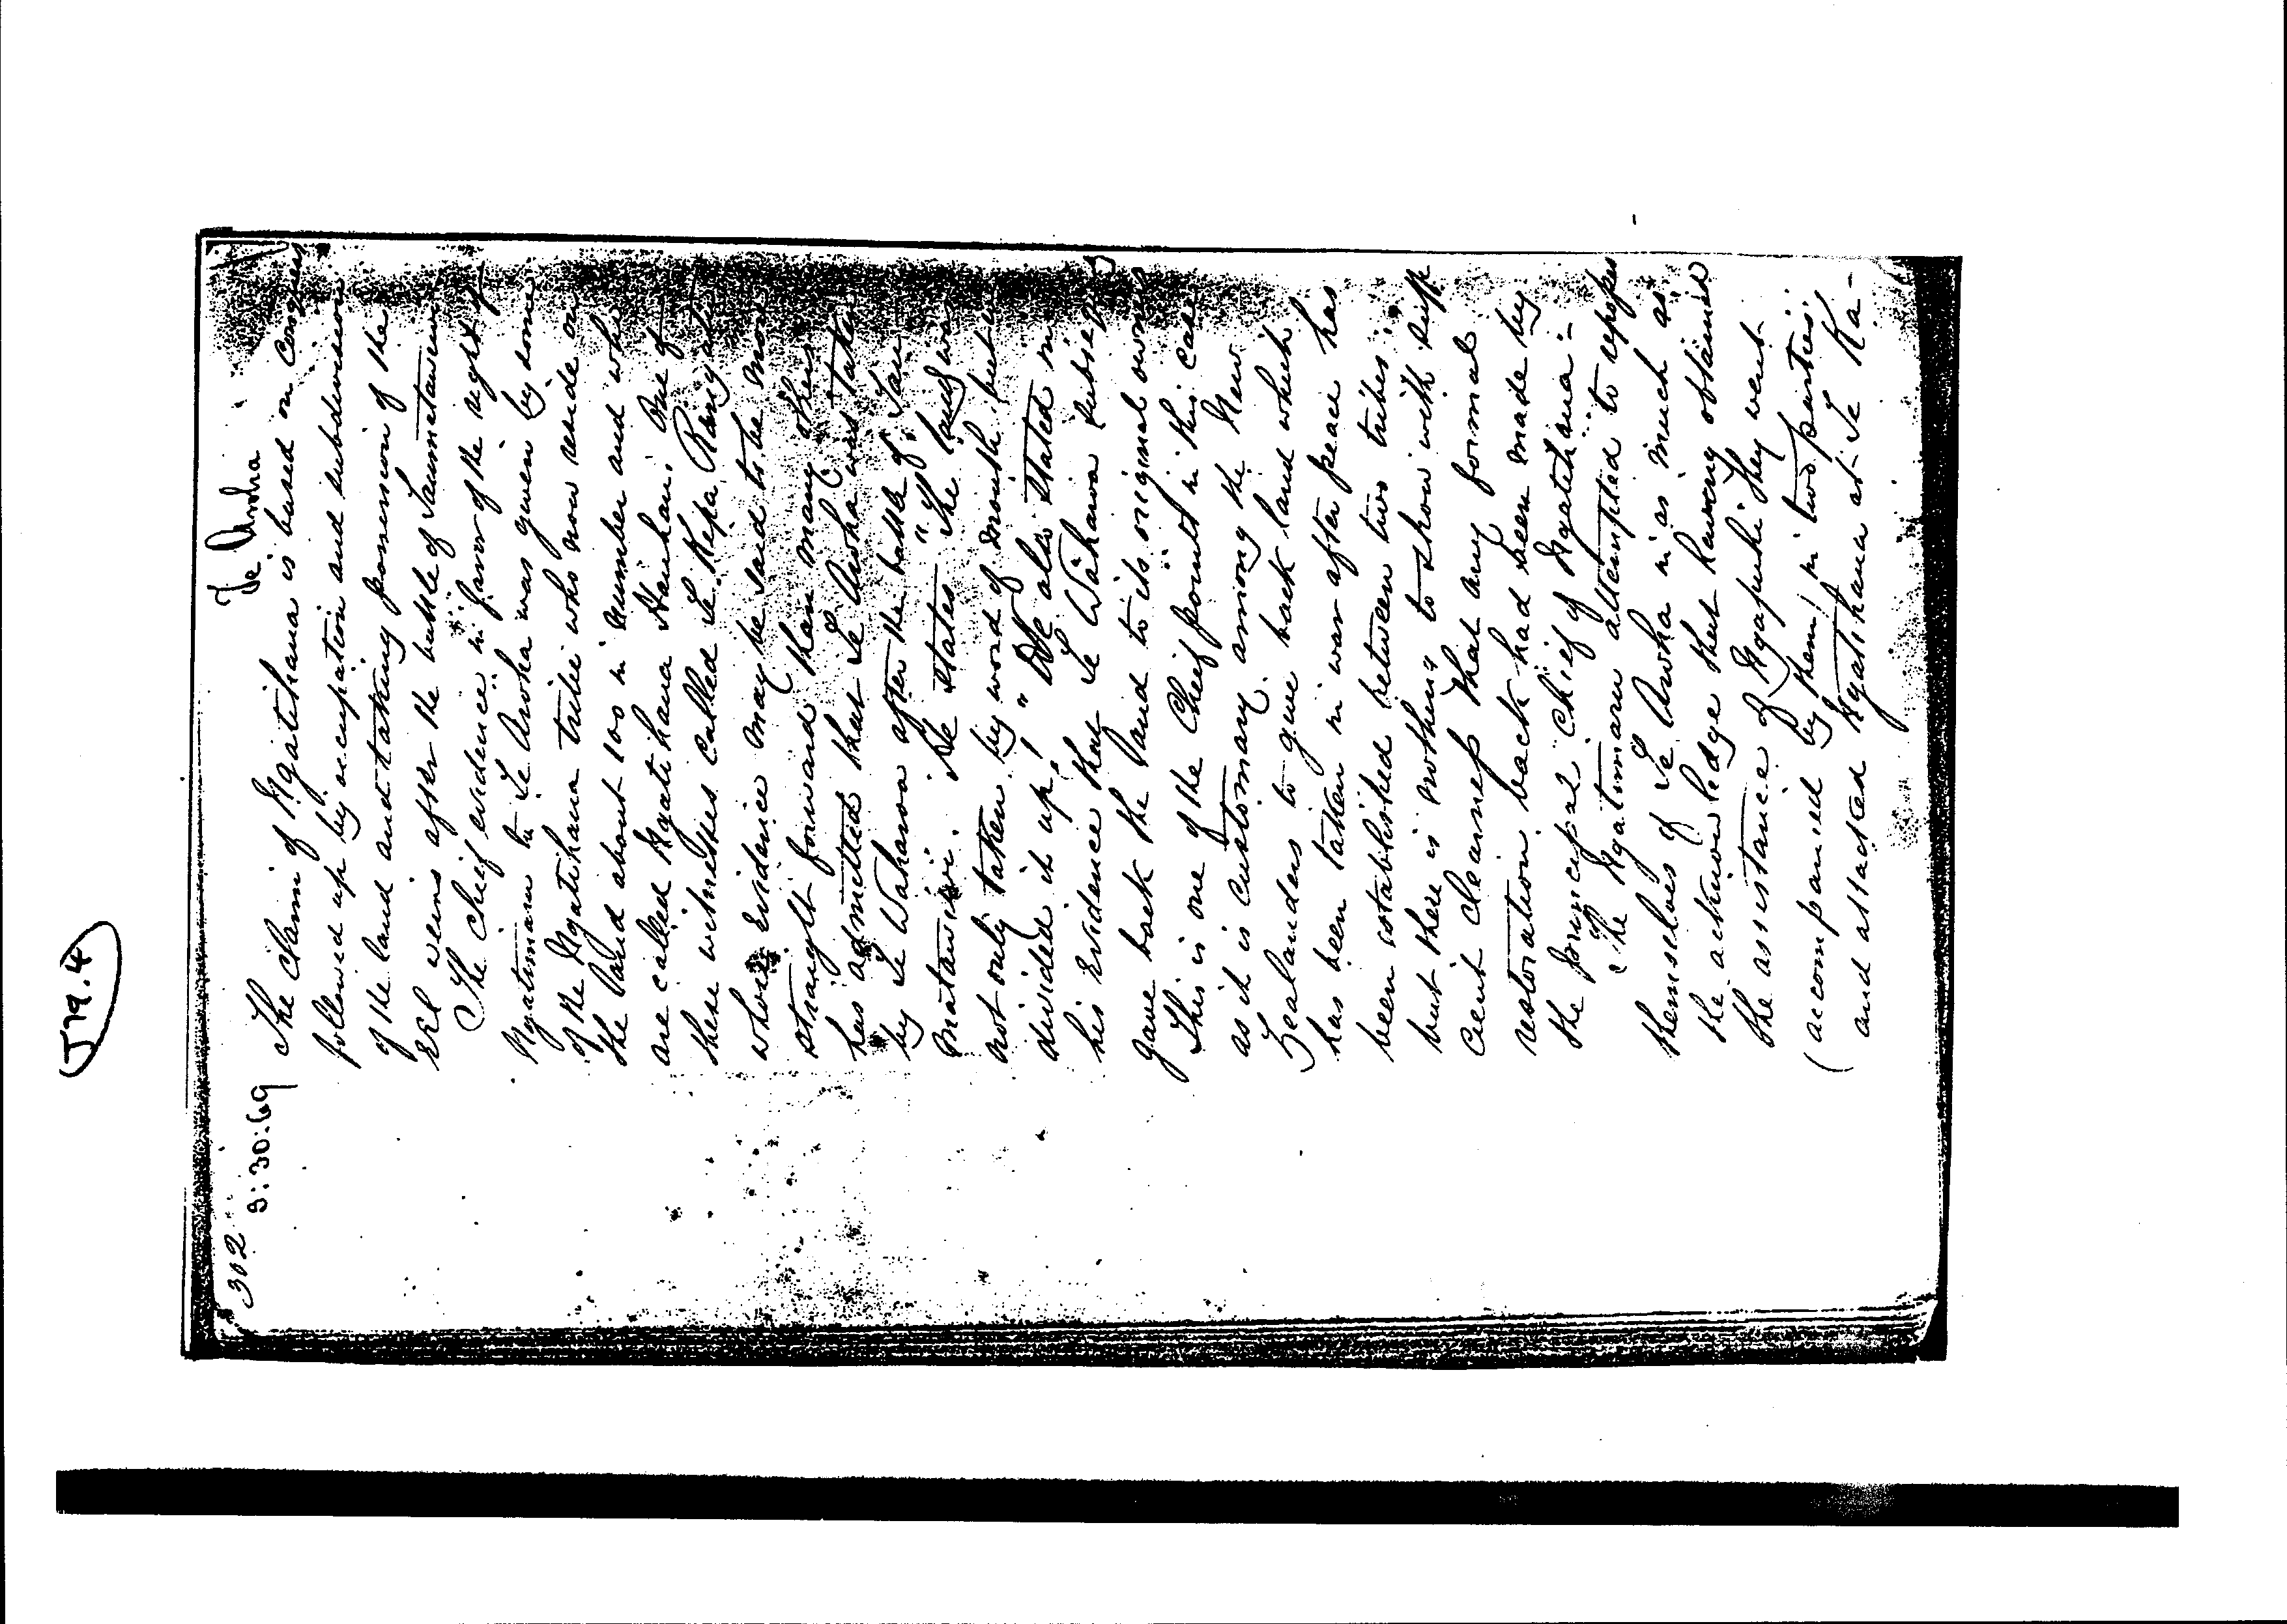 (J79.4)
302
3:30:69
Te Aroha
The claim of Ngatihaua is based on Conquest
followed up by occupation and subdivision
of the land and taking possession of the
Eel weirs after the battle of Taumatawiwi
The chief evidence in favor of the right of
Ngatimaru to Te Aroha was given by some
of the Ngatihaua tribe who now reside on
the land about 100 in number and who
are called Ngatihaua Hauhau. One of
these witnesses called Te Kepa Rangi
whose evidence may be said to be more
straight forward than many others
has admitted that Te Aroha was taken
by Te Waharoa after the battle of Tau
matawiwi. He states "The land was
not only taken by word of mouth but
divided it up." He also stated in
his evidence that Te Waharoa
gave back the land to its original owners
This is one of the Chief points in this case
as it is customary among the New
Zealanders to give back land which
has been taken in war after peace has
been established between two tribes
but there is nothing to show with suffi
cient clearness that any formal
restoration back had been made by
the principal chief of Ngatihaua:
The Ngatimaru attempted to
themselves of Te Aroha in as much as
the acknowledge that having obtained
the assistance of Ngapuhi they went
(accompanied by them) in two parties
and attacked Ngatihaua at Te Ka-